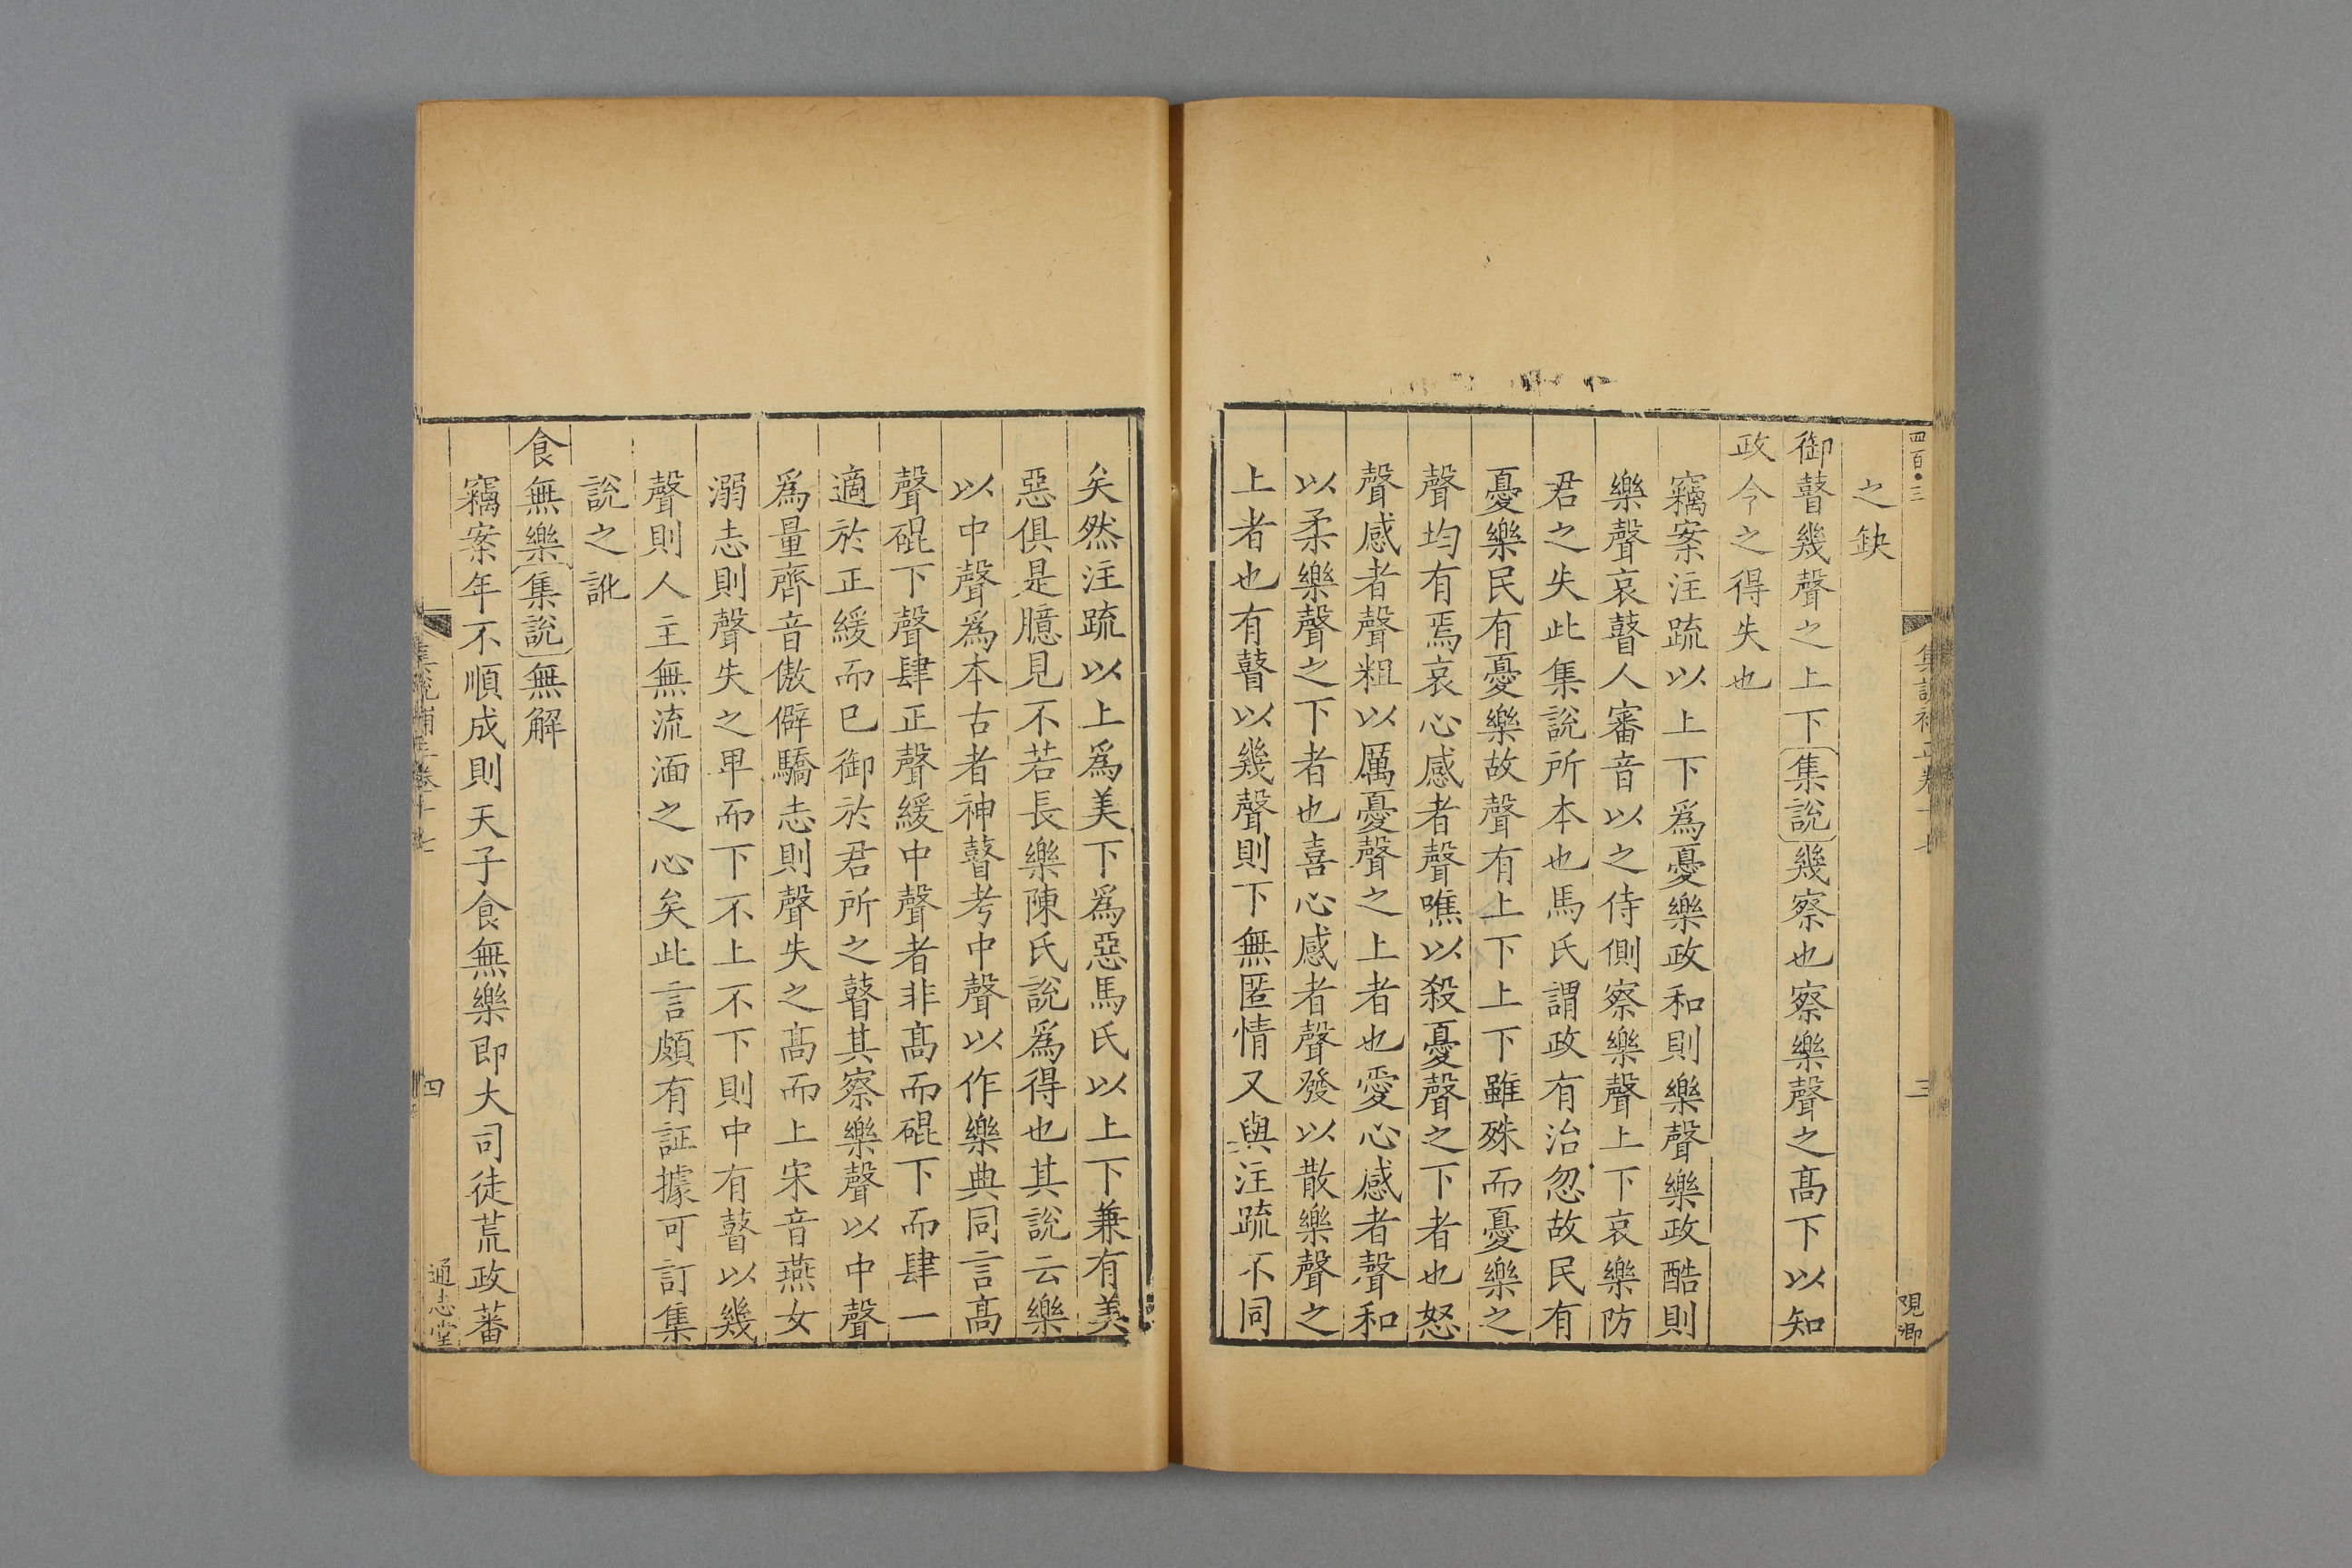 四百三
集説補正卷十七
三
之缺
御瞽幾聲之上下集說幾察也察樂聲之髙下以知
政令之得失也
竊案注疏以上下爲憂樂政和則樂聲樂政酷則
樂聲哀瞽人審音以之侍側察樂聲上下哀樂防
君之失此集說所本也馬氏謂政有治忽故民有
憂樂民有憂樂故聲有上下上下雖殊而憂樂之
聲均有焉哀心感者聲噍以殺憂聲之下者也怒
聲感者聲粗以厲憂聲之上者也愛心感者聲和
以柔樂聲之下者也喜心感者聲發以散樂聲之
上者也有瞽以幾聲則下無匿情又與注疏不同
矣然注疏以上爲美下爲惡馬氏以上下兼有美
惡俱是臆見不若長樂陳氏說爲得也其說云樂
以中聲爲本古者神瞽考中聲以作樂典同言髙
聲䃂下聲肆正聲緩中聲者非髙而䃂下而肆一
適於正緩而已御於君所之瞽其察樂聲以中聲
爲量齊音傲僻驕志則聲失之髙而上宋音燕女
溺志則聲失之卑而下不上不下則中有瞽以幾
聲則人主無流湎之心矣此言頗有証據可訂集
說之訛
食無樂集說無解
竊案年不順成則天子食無樂即大司徒荒政蕃
集說補正卷十七
四
通志堂